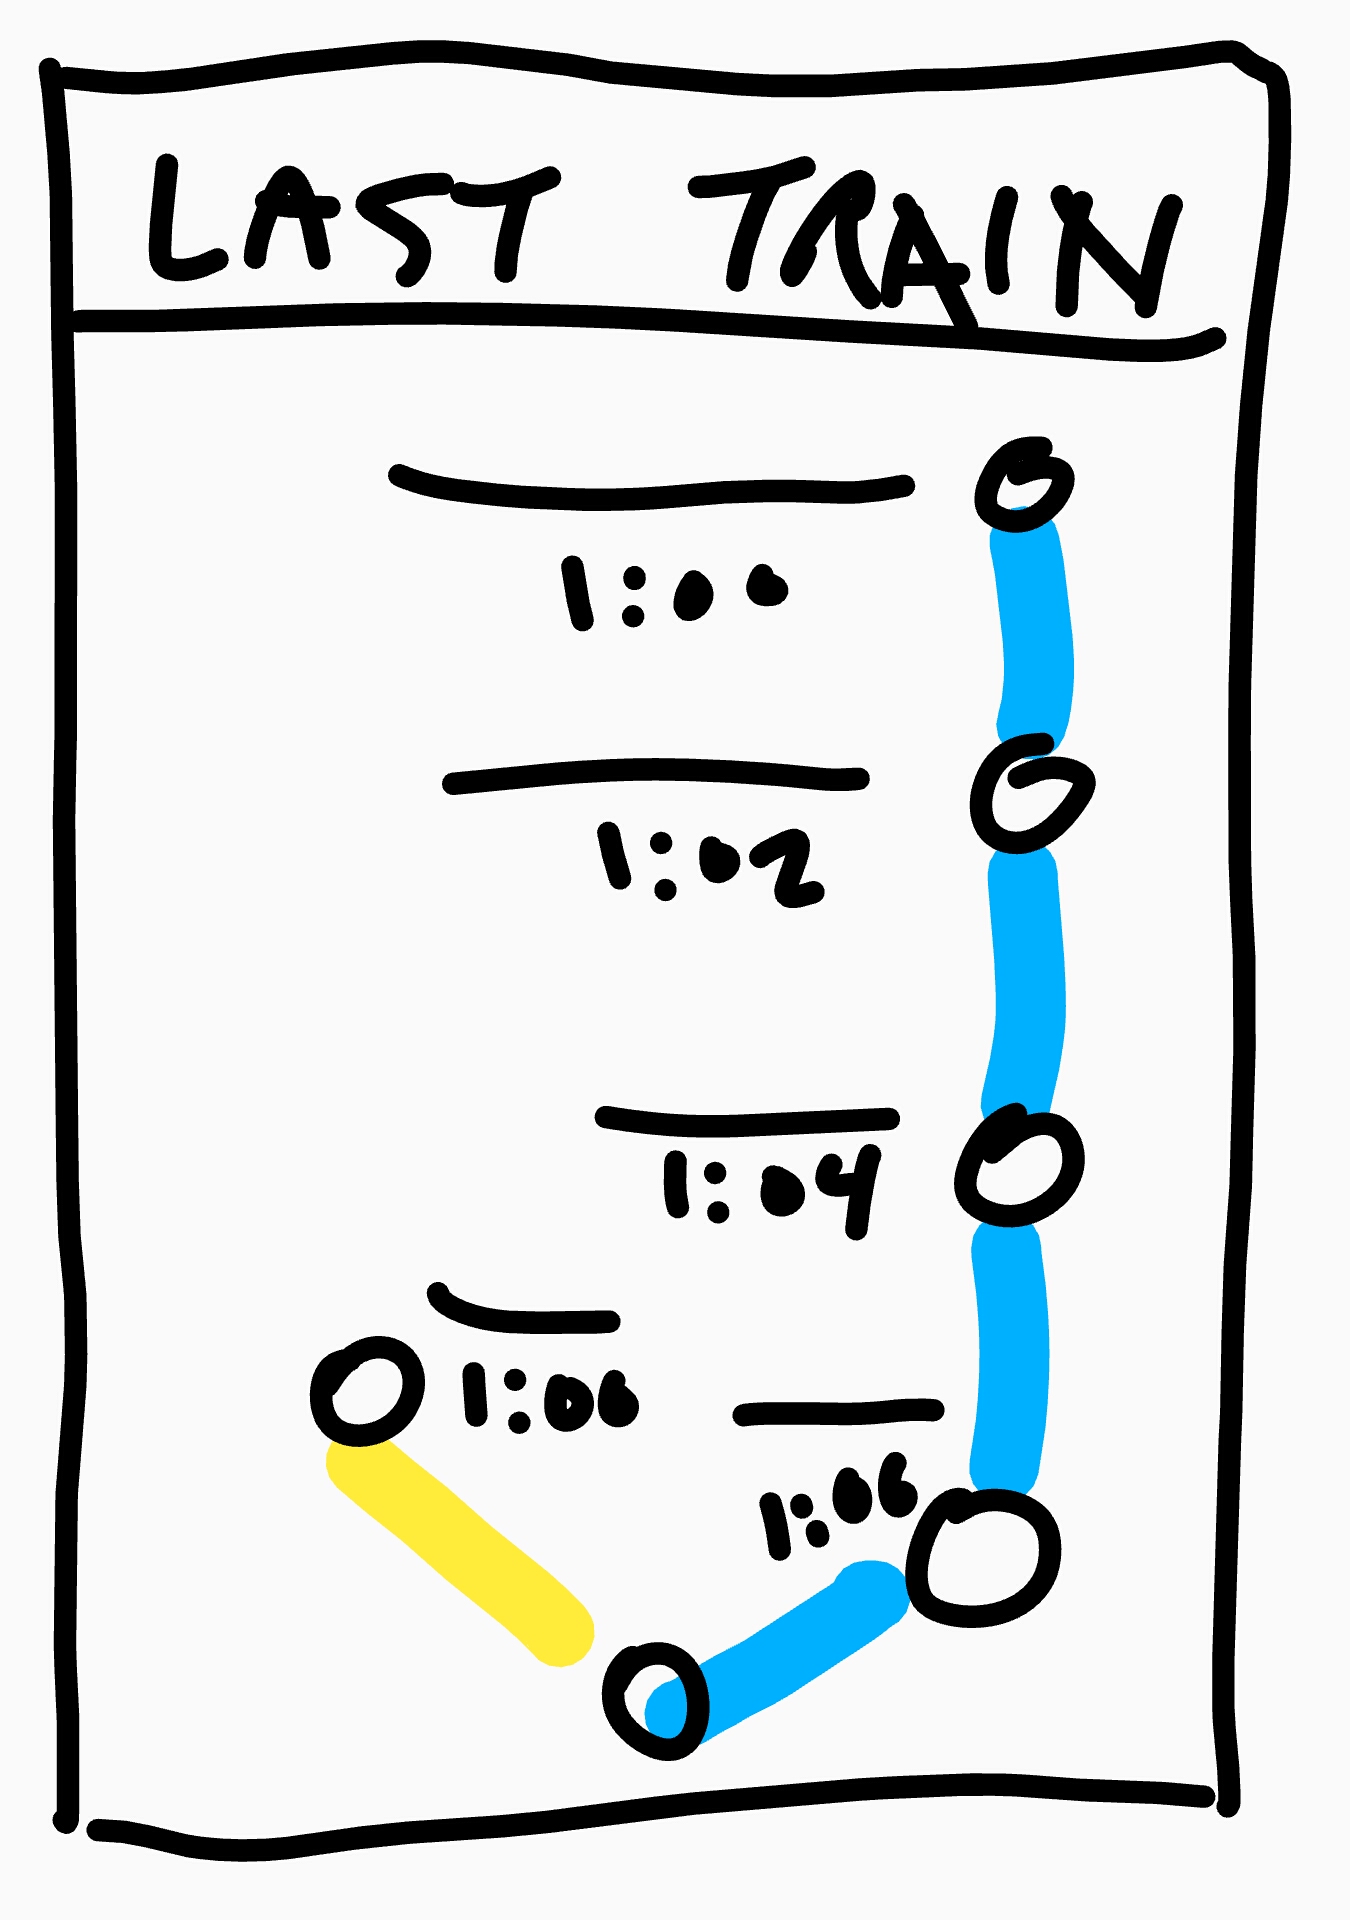 LAST TRAIN
1:00
1:02
1:04
1:06
1:06